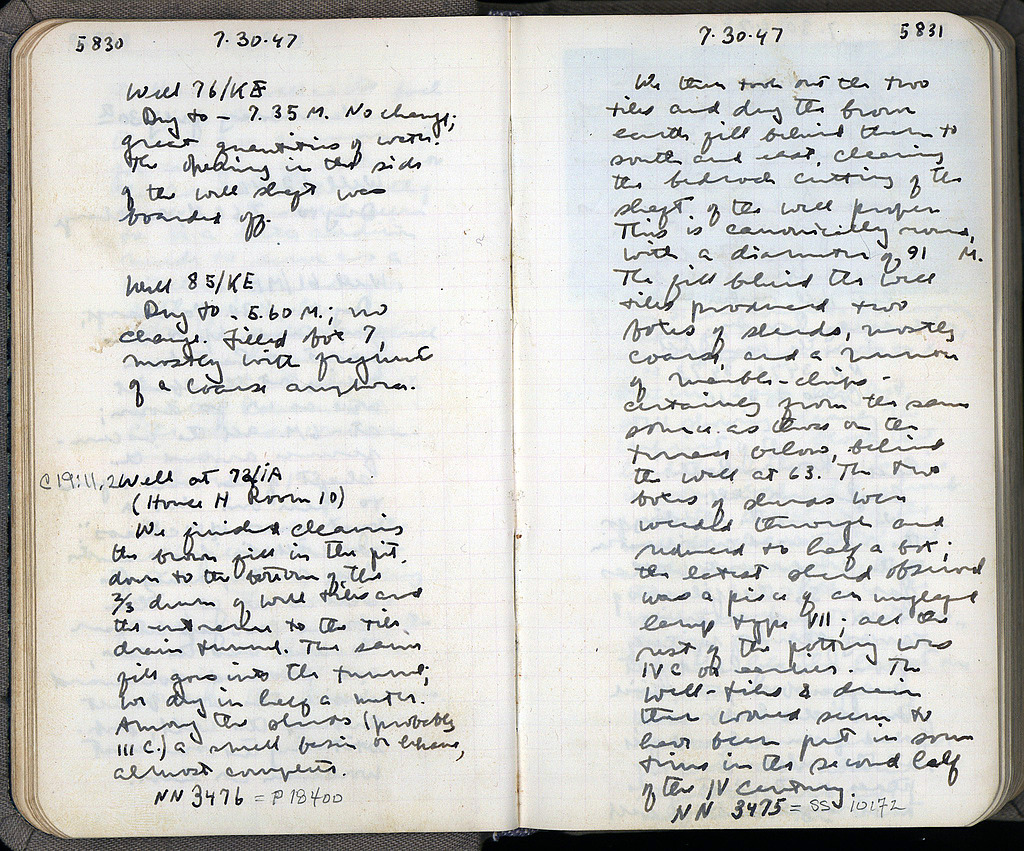 5830
7·30·47
Well 76/KE
Dug to – 7.35 M. No change;
great quantities of water.
The opening in the side
of the well shaft was
boarded off.
Well 85/KE
Dug to – 5.60 M.; no
change. Filled box 7,
mostly with fragments
of a coarse amphora.
C 19:11,2 Well at 73/ΙΑ
(House H Room 10)
We finished clearing
the brown fill in the pit
down to the bottom of the
2/3 drum of well tiles and
the entrance to the tile
drain tunnel. The same
fill goes into the tunnel;
we dug in half a meter.
Among the sherds (probably
III C.) a small basin or lekane,
almost complete.
NN 3476 = P 18400
7·30·47
5831
We then took out the two
tiles and dug the brown
earth fill behind them to
south and east, clearing
the bedrock cutting of the
shaft of the well proper.
This is canonically round,
with a diameter of 91 M.
The fill behind the well
tiles produced two
boxes of sherds, mostly
coarse, and a number
of marble-chips -
certainly from the same
source as those on the
terrace below, behind
the well at 63. The two
boxes of sherds were
worked through and
reduced to half a box;
the latest sherd observed
was a piece of an unglazed
lamp type VII; all the
rest of the pottery was
IV C or earlier. The
well-tiles & drain
then would seem to
have been put in some
time in the second half
of the IV century.
NN 3475 = SS 10172